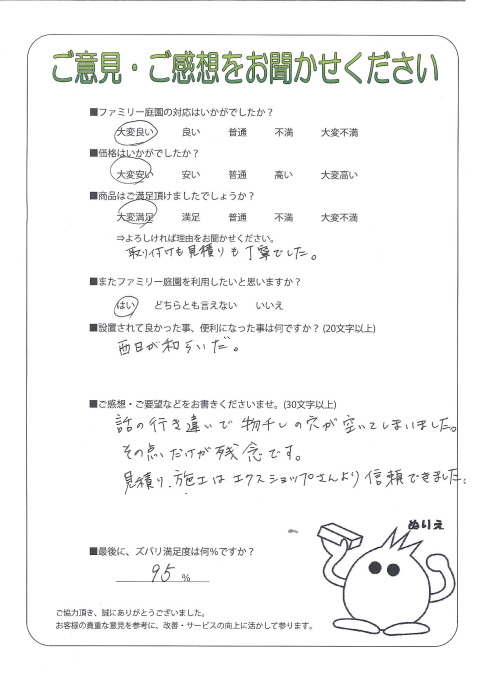 ご意見・ご感想をお聞かせください
■ファミリー庭園の対応はいかがでしたか？
大変良い 良い 普通 不満 大変不満
■価格はいかがでしたか？
大変安い 安い 普通 高い 大変高い
■商品はご満足頂けましたでしょうか？
大変満足 満足 普通 不満 大変不満
⇒よろしければ理由をお聞かせください。
取り付けも見積りも丁寧でした。
■またファミリー庭園を利用したいと思いますか？
はい どちらとも言えない いいえ
■設置されて良かった事、便利になった事は何ですか？(20文字以上)
西日が和らいだ。
■ご感想・ご要望などをお書きくださいませ。(30文字以上)
話の行き違いで物干しの穴が空いてしまいました。
その点だけが残念です。
見積り、施工はエクスショップさんより信頼できました。
ぬりえ
■最後に、ズバリ満足度は何％ですか？
95 %
ご協力頂き、誠にありがとうございました。
お客様の貴重な意見を参考に、改善・サービスの向上に活かして参ります。